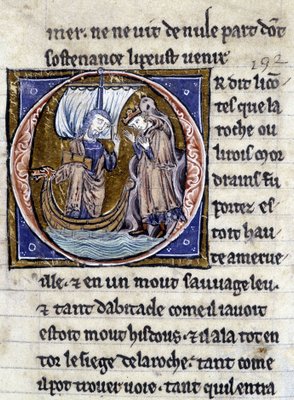 mer. ne ne uit de nule part dōt
sostenance li peust uenir
192
Or dit li cō
tes que la
roche ou
li rois mor
drains fu
portez es
toit hau
te a merue
ille. ⁊ en un mout sauuage leu.
⁊ tant dabitacle come il i auoit
estoit mout hisdous. ⁊ il a la tot en
tor le siege de la roche. tant come
il pot trouer uoie. tant quil entra